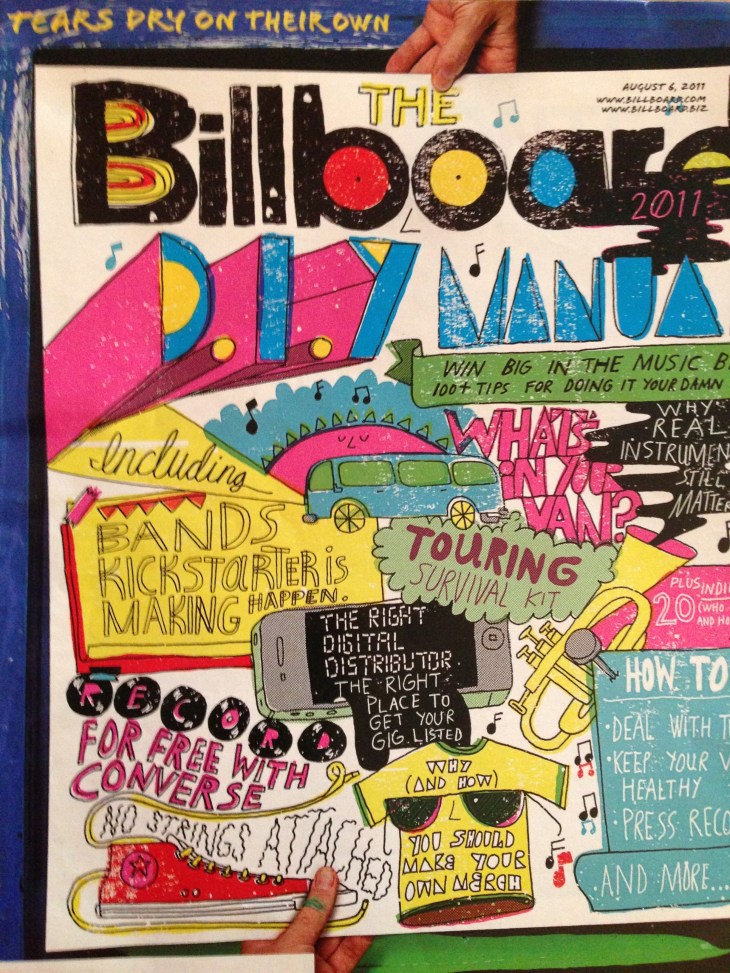 TEARS DRY ON THEIR OWN
AUGUST 6, 2011
WWW.BILLBOARD.COM
WWW.BILLBOARD.BIZ
THE
Billboard
2011
D.I.Y MANUA
WIN BIG IN THE MUSIC B
100+ TIPS FOR DOING IT YOUR DAMN
Including
WHAT'S
IN YOUR
VAN?
WHY
REAL
INSTRUMEN
STILL
MATTER
BANDS
KICKSTARTER is
MAKING HAPPEN.
TOURING
SURVIVAL KIT
PLUS INDI
20 (WHO
AND HO
THE RIGHT
DIGITAL
DISTRIBUTOR
THE RIGHT
PLACE TO
GET YOUR
GIG LISTED
HOW TO
•DEAL WITH T
•KEEP YOUR V
HEALTHY
•PRESS RECO
AND MORE...
RECORD
FOR FREE WITH
CONVERSE
NO STRINGS ATTACHED
WHY
(AND HOW)
YOU SHOULD
MAKE YOUR
OWN MERCH